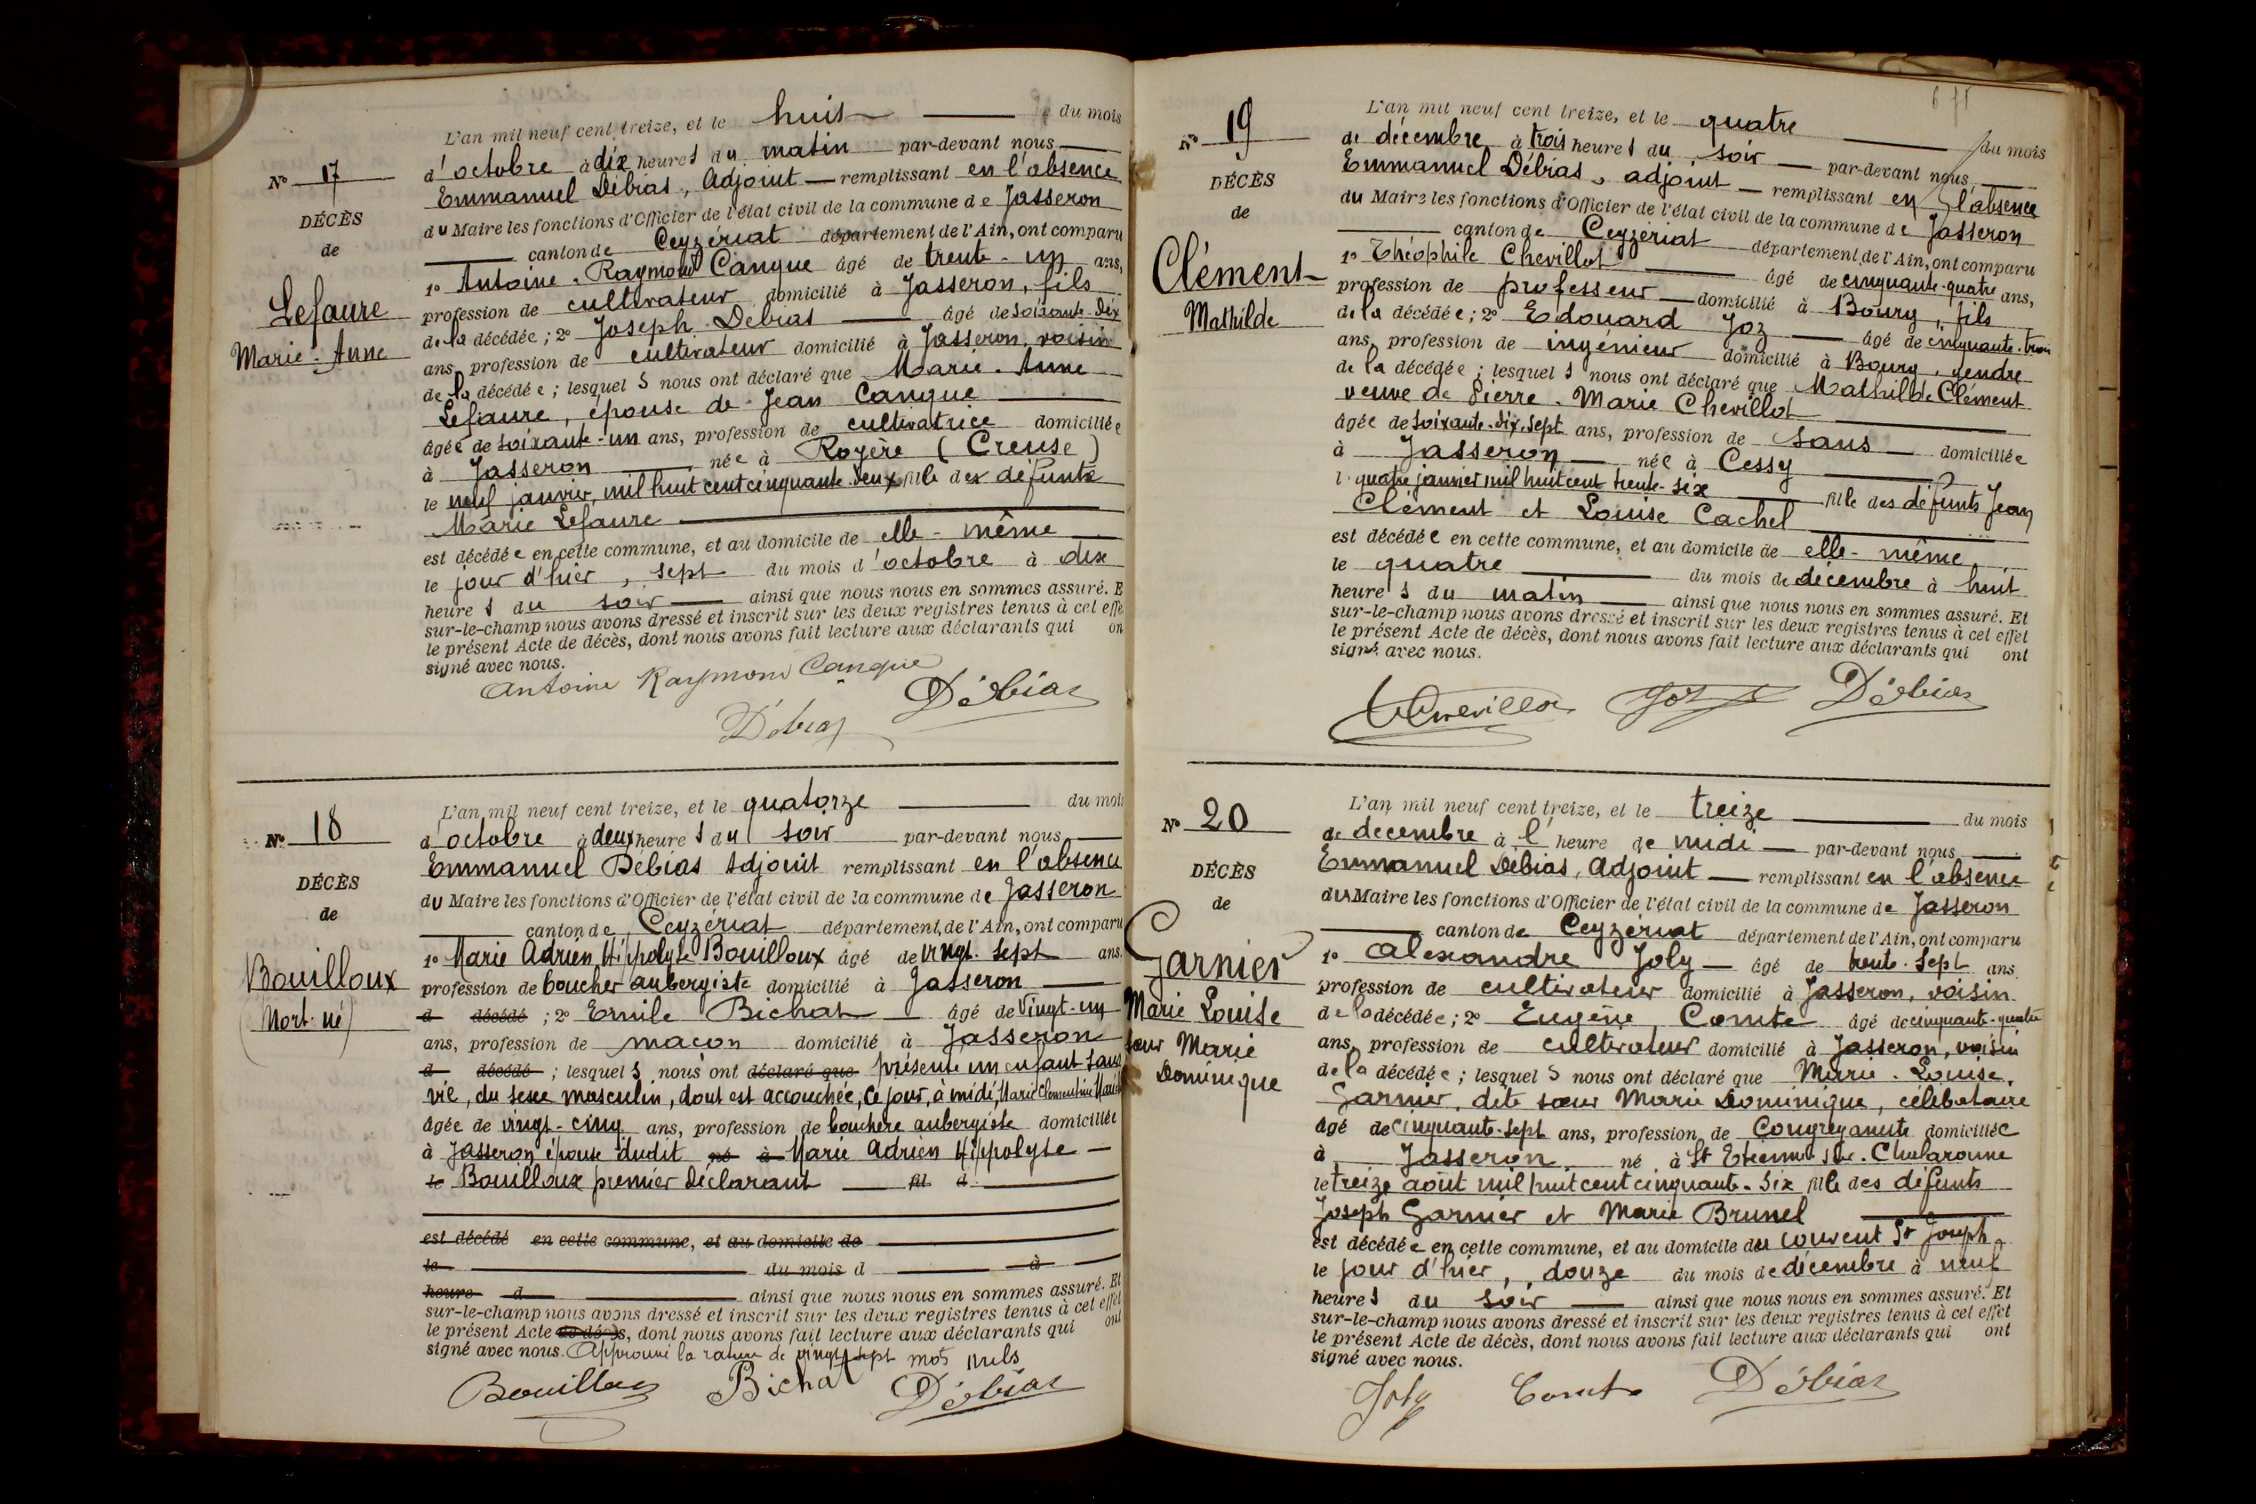 L'an mil neuf cent treize, et le huit du mois
Nº 17
d'octobre à dix heures du matin par-devant nous
Emmanuel Débias, Adjoint remplissant en l'absence
DÉCÈS
du Maire les fonctions d'Officier de l'état civil de la commune de Jasseron
de
canton de Ceyzériat département de l'Ain, ont comparu
Lefaure
Marie-Anne
1º Antoine-Raymond Canque âgé de trente-un ans,
profession de cultivateur domicilié à Jasseron, fils
de la décédée; 2º Joseph Debias âgé de soixante-dix
ans, profession de cultivateur domicilié à Jasseron, voisin
de la décédée; lesquels nous ont déclaré que Marie-Anne
Lefaure, épouse de Jean Canque
âgée de soixante-un ans, profession de cultivatrice domiciliée
à Jasseron, née à Royère (Creuse)
le neuf janvier mil huit cent cinquante-deux fille des défunts
Marie Lefaure
est décédée en cette commune, et au domicile de elle-même
le jour d'hier, sept du mois d'octobre à dix
heures du soir ainsi que nous nous en sommes assuré. E
sur-le-champ nous avons dressé et inscrit sur les deux registres tenus à cet effe
le présent Acte de décès, dont nous avons fait lecture aux déclarants qui on
signé avec nous.
Antoine Raymond Canque
Débias
Débias
L'an mil neuf cent treize, et le quatorze du mois
Nº 18
d'octobre à deux heures du soir par-devant nous
Emmanuel Débias Adjoint remplissant en l'absence
DÉCÈS
du Maire les fonctions d'Officier de l'état civil de la commune de Jasseron
de
canton de Ceyzériat département de l'Ain, ont comparu
Bouilloux
(Mort-né)
1º Marie Adrien Hippolyte Bouilloux âgé de vingt-sept ans.
profession de boucher aubergiste domicilié à Jasseron
d décédé; 2º Emile Bichat âgé de vingt-un
ans, profession de maçon domicilié à Jasseron
d décédé; lesquels nous ont déclaré que présenté un enfant sans
vie, du sexe masculin, dont est accouchée, ce jour, à midi, Marie Clémentine
âgée de vingt-cinq ans, profession de bouchère aubergiste domiciliée
à Jasseron épouse dudit né à Marie Adrien Hippolyte
le Bouilloux premier déclarant fil d
est décédé en cette commune, et au domicile de
le du mois d à
heure d ainsi que nous nous en sommes assuré. Et
sur-le-champ nous avons dressé et inscrit sur les deux registres tenus à cet effet
le présent Acte de décès, dont nous avons fait lecture aux déclarants qui ont
signé avec nous. Approuvé la rature de vingt sept mots nuls
Bouilloux
Bichat
Débias
L'an mil neuf cent treize, et le quatre du mois
Nº 19
de décembre à trois heures du soir par-devant nous,
Emmanuel Débias, adjoint remplissant en l'absence
DÉCÈS
du Maire les fonctions d'Officier de l'état civil de la commune de Jasseron
de
canton de Ceyzériat département de l'Ain, ont comparu
Clément
Mathilde
1º Théophile Chevillot âgé de cinquante-quatre ans,
profession de professeur domicilié à Bourg, fils
de la décédée; 2º Edouard Joz âgé de cinquante-trois
ans, profession de ingénieur domicilié à Bourg, gendre
de la décédée; lesquels nous ont déclaré que Mathilde Clément
veuve de Pierre-Marie Chevillot
âgée de soixante-dix-sept ans, profession de sans domiciliée
à Jasseron née à Cessy
l quatre janvier mil huit cent trente-six fille des défunts Jean
Clément et Louise Cachel
est décédée en cette commune, et au domicile de elle-même
le quatre du mois de décembre à huit
heures du matin ainsi que nous nous en sommes assuré. Et
sur-le-champ nous avons dressé et inscrit sur les deux registres tenus à cet effet
le présent Acte de décès, dont nous avons fait lecture aux déclarants qui ont
signé avec nous.
Chevillot
Joz
Débias
L'an mil neuf cent treize, et le treize du mois
Nº 20
de décembre à l' heure de midi par-devant nous
Emmanuel Débias, Adjoint remplissant en l'absence
DÉCÈS
du Maire les fonctions d'Officier de l'état civil de la commune de Jasseron
de
canton de Ceyzériat département de l'Ain, ont comparu
Garnier
Marie Louise
sœur Marie
Dominique
1º Alexandre Joly âgé de trente-sept ans.
profession de cultivateur domicilié à Jasseron, voisin
de la décédée; 2º Eugène Comte âgé de cinquante-quatre
ans, profession de cultivateur domicilié à Jasseron, voisin
de la décédée; lesquels nous ont déclaré que Marie-Louise,
Garnier, dite sœur Marie Dominique, célibataire
âgé de cinquante-sept ans, profession de Congréganiste domiciliée
à Jasseron, né à St Etienne sur Chalaronne
le treize août mil huit cent cinquante-six fille des défunts
Joseph Garnier et Marie Brunel
est décédée en cette commune, et au domicile du couvent St Joseph
le jour d'hier, douze du mois de décembre à neuf
heures du soir ainsi que nous nous en sommes assuré. Et
sur-le-champ nous avons dressé et inscrit sur les deux registres tenus à cet effet
le présent Acte de décès, dont nous avons fait lecture aux déclarants qui ont
signé avec nous.
Joly
Comte
Débias